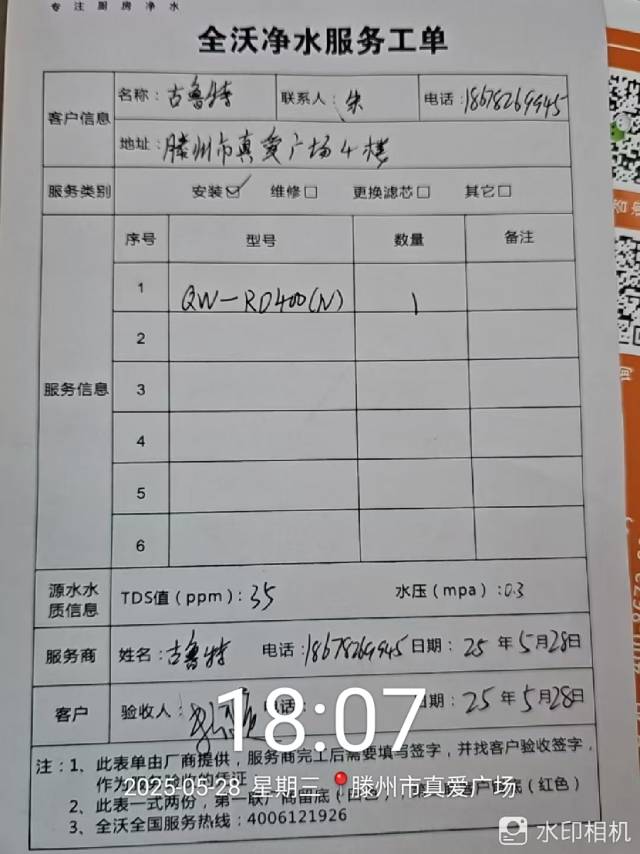 专注厨房净水
全沃净水服务工单
客户信息
名称：古鲁特 联系人：朱 电话：18678269945
地址：滕州市真爱广场4楼
服务类别 安装☑ 维修□ 更换滤芯□ 其它□
服务信息
序号 型号 数量 备注
1 QW-RO400(N) 1
2
3
4
5
6
源水水质信息 TDS值（ppm）：35 水压（mpa）：0.3
服务商 姓名：古鲁特 电话：18678269945 日期：25年5月28日
客户 验收人： 电话： 日期：25年5月28日
18:07
注：1、此表单由厂商提供，服务商完工后需要填写签字，并找客户验收签字，
作为服务验收的凭证
2025-05-28 星期三 滕州市真爱广场
2、此表一式两份，第一联厂商留底（白色），底（红色）
3、全沃全国服务热线：4006121926
水印相机